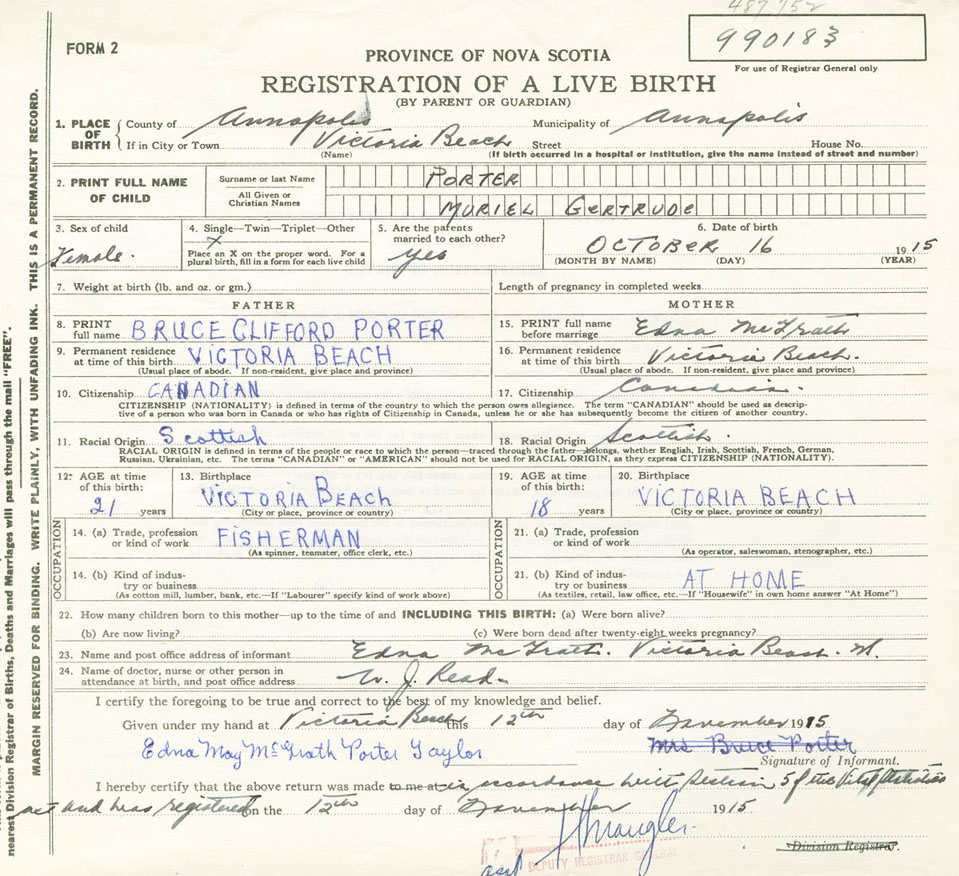 487752
990183
For use of Registrar General only
FORM 2
PROVINCE OF NOVA SCOTIA
REGISTRATION OF A LIVE BIRTH
(BY PARENT OR GUARDIAN)
1. PLACE OF BIRTH { County of Annapolis Municipality of Annapolis
If in City or Town Victoria Beach Street House No.
(Name) (If birth occurred in a hospital or institution, give the name instead of street and number)
2. PRINT FULL NAME OF CHILD Surname or last Name PORTER
All Given or Christian Names MURIEL GERTRUDE
3. Sex of child Female.
4. Single—Twin—Triplet—Other
X
Place an X on the proper word. For a plural birth, fill in a form for each live child
5. Are the parents married to each other? yes
6. Date of birth
OCTOBER 16 1915
(MONTH BY NAME) (DAY) (YEAR)
7. Weight at birth (lb. and oz. or gm.) Length of pregnancy in completed weeks
FATHER
8. PRINT full name BRUCE CLIFFORD PORTER
9. Permanent residence at time of this birth VICTORIA BEACH
(Usual place of abode. If non-resident, give place and province)
10. Citizenship CANADIAN
MOTHER
15. PRINT full name before marriage Edna McGrath
16. Permanent residence at time of this birth Victoria Beach.
(Usual place of abode. If non-resident, give place and province)
17. Citizenship Canadian.
CITIZENSHIP (NATIONALITY) is defined in terms of the country to which the person owes allegience. The term "CANADIAN" should be used as descrip-
tive of a person who was born in Canada or who has rights of Citizenship in Canada, unless he or she has subsequently become the citizen of another country.
11. Racial Origin Scottish 18. Racial Origin Scottish.
RACIAL ORIGIN is defined in terms of the people or race to which the person—traced through the father—belongs, whether English, Irish, Scottish, French, German,
Russian, Ukrainian, etc. The terms "CANADIAN" or "AMERICAN" should not be used for RACIAL ORIGIN, as they express CITIZENSHIP (NATIONALITY).
12. AGE at time of this birth: 21 years
13. Birthplace VICTORIA BEACH
(City or place, province or country)
19. AGE at time of this birth: 18 years
20. Birthplace VICTORIA BEACH
(City or place, province or country)
OCCUPATION
14. (a) Trade, profession or kind of work FISHERMAN
(As spinner, teamster, office clerk, etc.)
14. (b) Kind of indus-
try or business
(As cotton mill, lumber, bank, etc.—If "Labourer" specify kind of work above)
OCCUPATION
21. (a) Trade, profession or kind of work
(As operator, saleswoman, stenographer, etc.)
21. (b) Kind of indus-
try or business AT HOME
(As textiles, retail, law office, etc.—If "Housewife" in own home answer "At Home")
22. How many children born to this mother—up to the time of and INCLUDING THIS BIRTH: (a) Were born alive?
(b) Are now living? (c) Were born dead after twenty-eight weeks pregnancy?
23. Name and post office address of informant Edna McGrath. Victoria Beach.
24. Name of doctor, nurse or other person in attendance at birth, and post office address W. J. Read.
I certify the foregoing to be true and correct to the best of my knowledge and belief.
Given under my hand at Victoria Beach this 12th day of November 1915
Edna May McGrath Porter Taylor Mrs Bruce Porter
Signature of Informant.
I hereby certify that the above return was made to me at in accordance with Section 5 of the Vital Statistics
act and was registered on the 12th day of November 1915
Division Registrar.
DEPUTY REGISTRAR GENERAL
MARGIN RESERVED FOR BINDING. WRITE PLAINLY, WITH UNFADING INK. THIS IS A PERMANENT RECORD.
nearest Division Registrar of Births, Deaths and Marriages will pass through the mail "FREE".